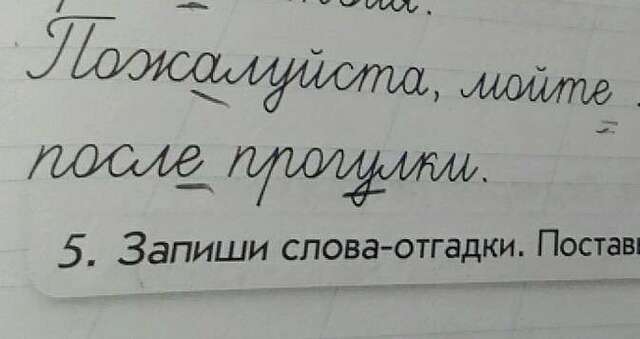 Пожалуйста, мойте
после прогулки.
5. Запиши слова-отгадки.